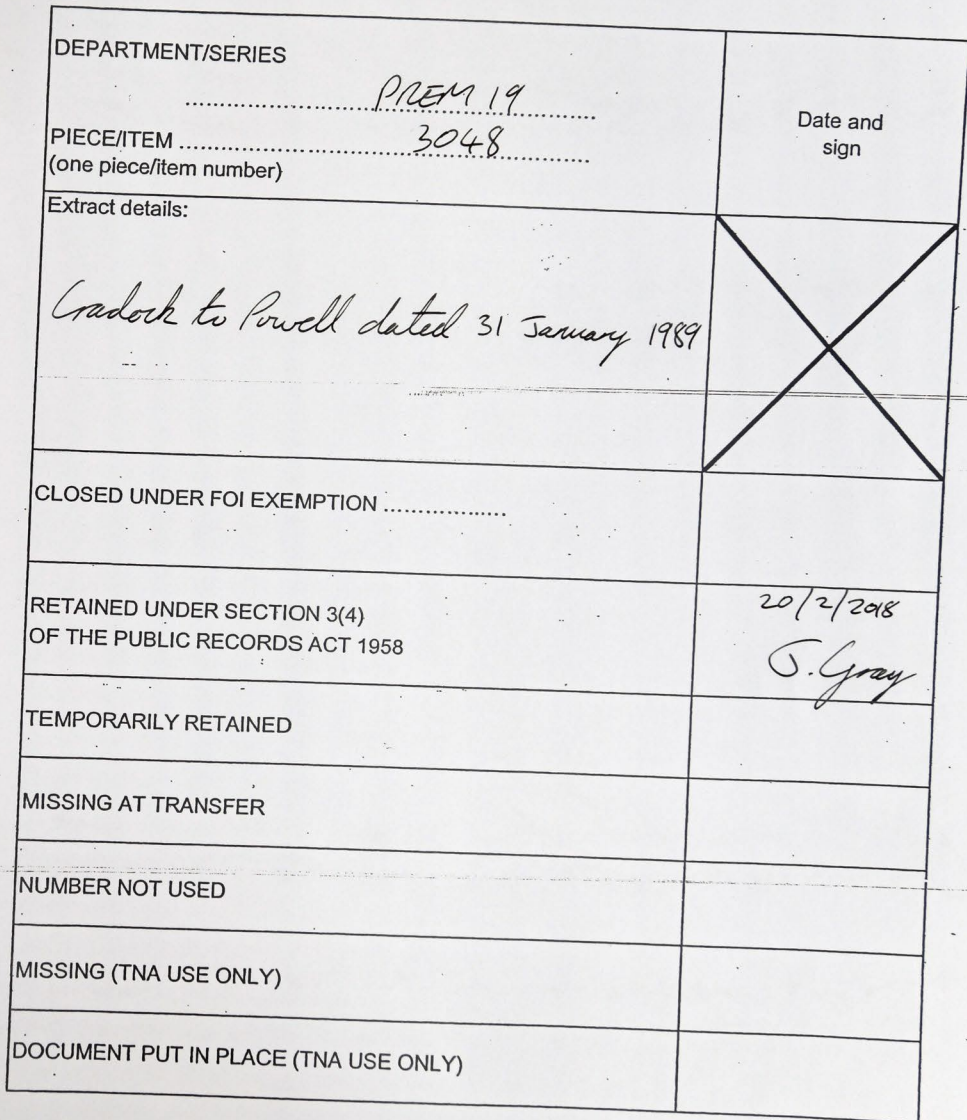 DEPARTMENT/SERIES
.................... PREM 19 ....................
PIECE/ITEM .................... 3048 ....................
(one piece/item number)
Date and
sign
Extract details:
Cradock to Powell dated 31 January 1989
CLOSED UNDER FOI EXEMPTION .................
RETAINED UNDER SECTION 3(4)
OF THE PUBLIC RECORDS ACT 1958
20/2/2018
J. Gray
TEMPORARILY RETAINED
MISSING AT TRANSFER
NUMBER NOT USED
MISSING (TNA USE ONLY)
DOCUMENT PUT IN PLACE (TNA USE ONLY)